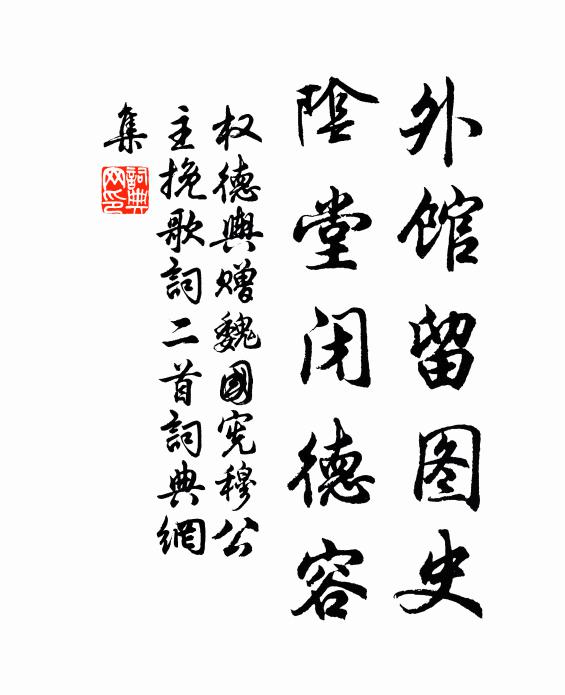 外馆留图史
陰堂闭德容
权德舆赠魏國宪穆公
主挽歌詞二首詞典網
集
詞典
网印